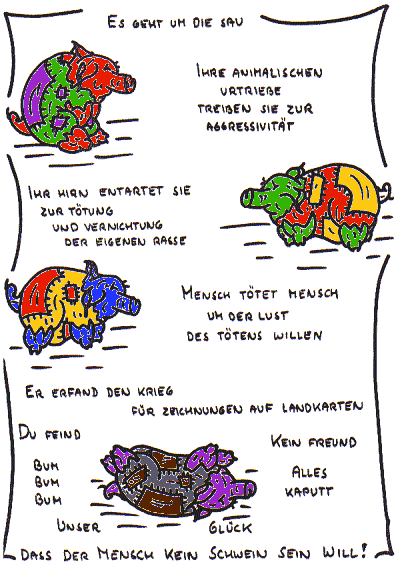 Es geht um die Sau
Ihre animalischen
Urtriebe
treiben sie zur
Aggressivität
Ihr Hirn entartet sie
zur Tötung
und Vernichtung
der eigenen Rasse
Mensch tötet Mensch
um der Lust
des Tötens willen
Er erfand den Krieg
für Zeichnungen auf Landkarten
Du Feind
Kein Freund
Bum
Bum
Bum
Alles
kaputt
Unser Glück
Dass der Mensch kein Schwein sein will!